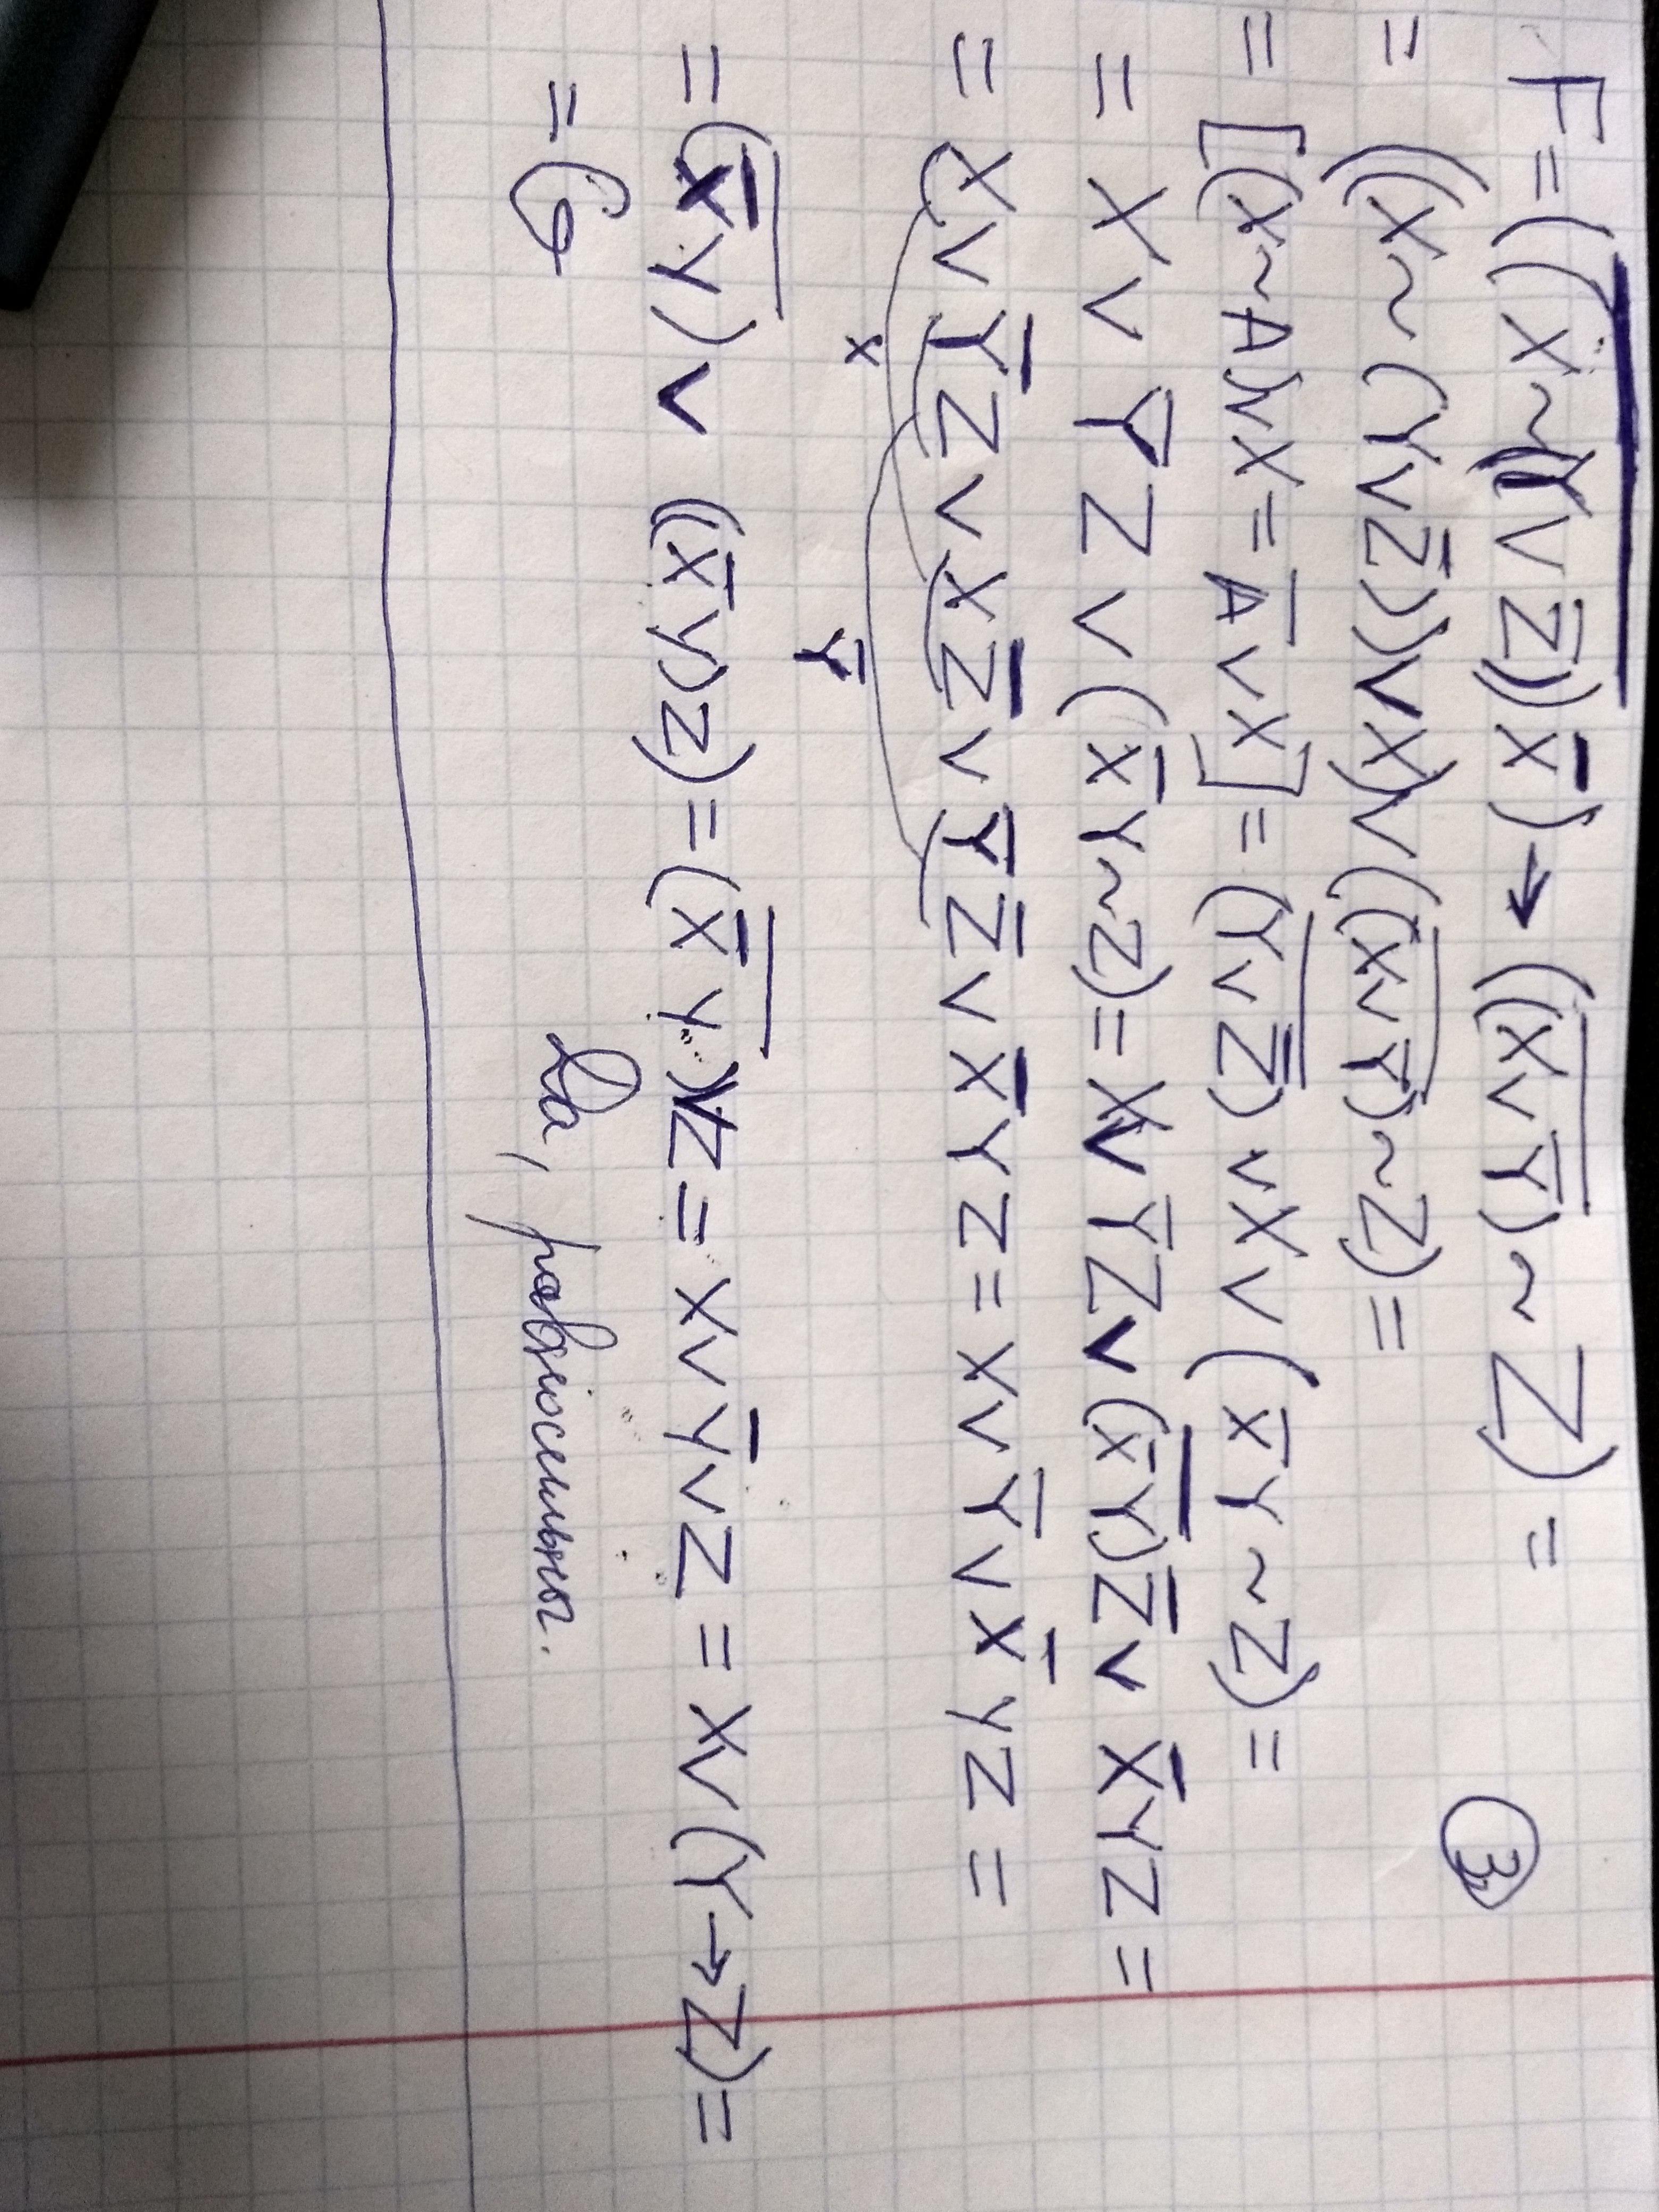 ③
F = ((\overline{X ~ (Y ∨ Z̅)}) X̅) → ((\overline{X ∨ Y̅}) ~ Z) =
= ((X ~ (Y ∨ Z̅)) ∨ X) ∨ ((\overline{X ∨ Y̅}) ~ Z) =
= [(X ~ A) ∨ X = A̅ ∨ X] = (\overline{Y ∨ Z̅}) ∨ X ∨ (X̅Y ~ Z) =
= X ∨ Y̅Z ∨ (X̅Y ~ Z) = X ∨ Y̅Z ∨ (\overline{X̅Y})Z̅ ∨ X̅YZ =
= X ∨ Y̅Z ∨ XZ̅ ∨ Y̅Z̅ ∨ X̅YZ = X ∨ Y̅ ∨ X̅YZ =
X Y̅
= (\overline{X̅Y}) ∨ ((X̅Y)Z) = (\overline{X̅Y}) ∨ Z = X ∨ Y̅ ∨ Z = X ∨ (Y → Z) =
= G Да, равносильны.